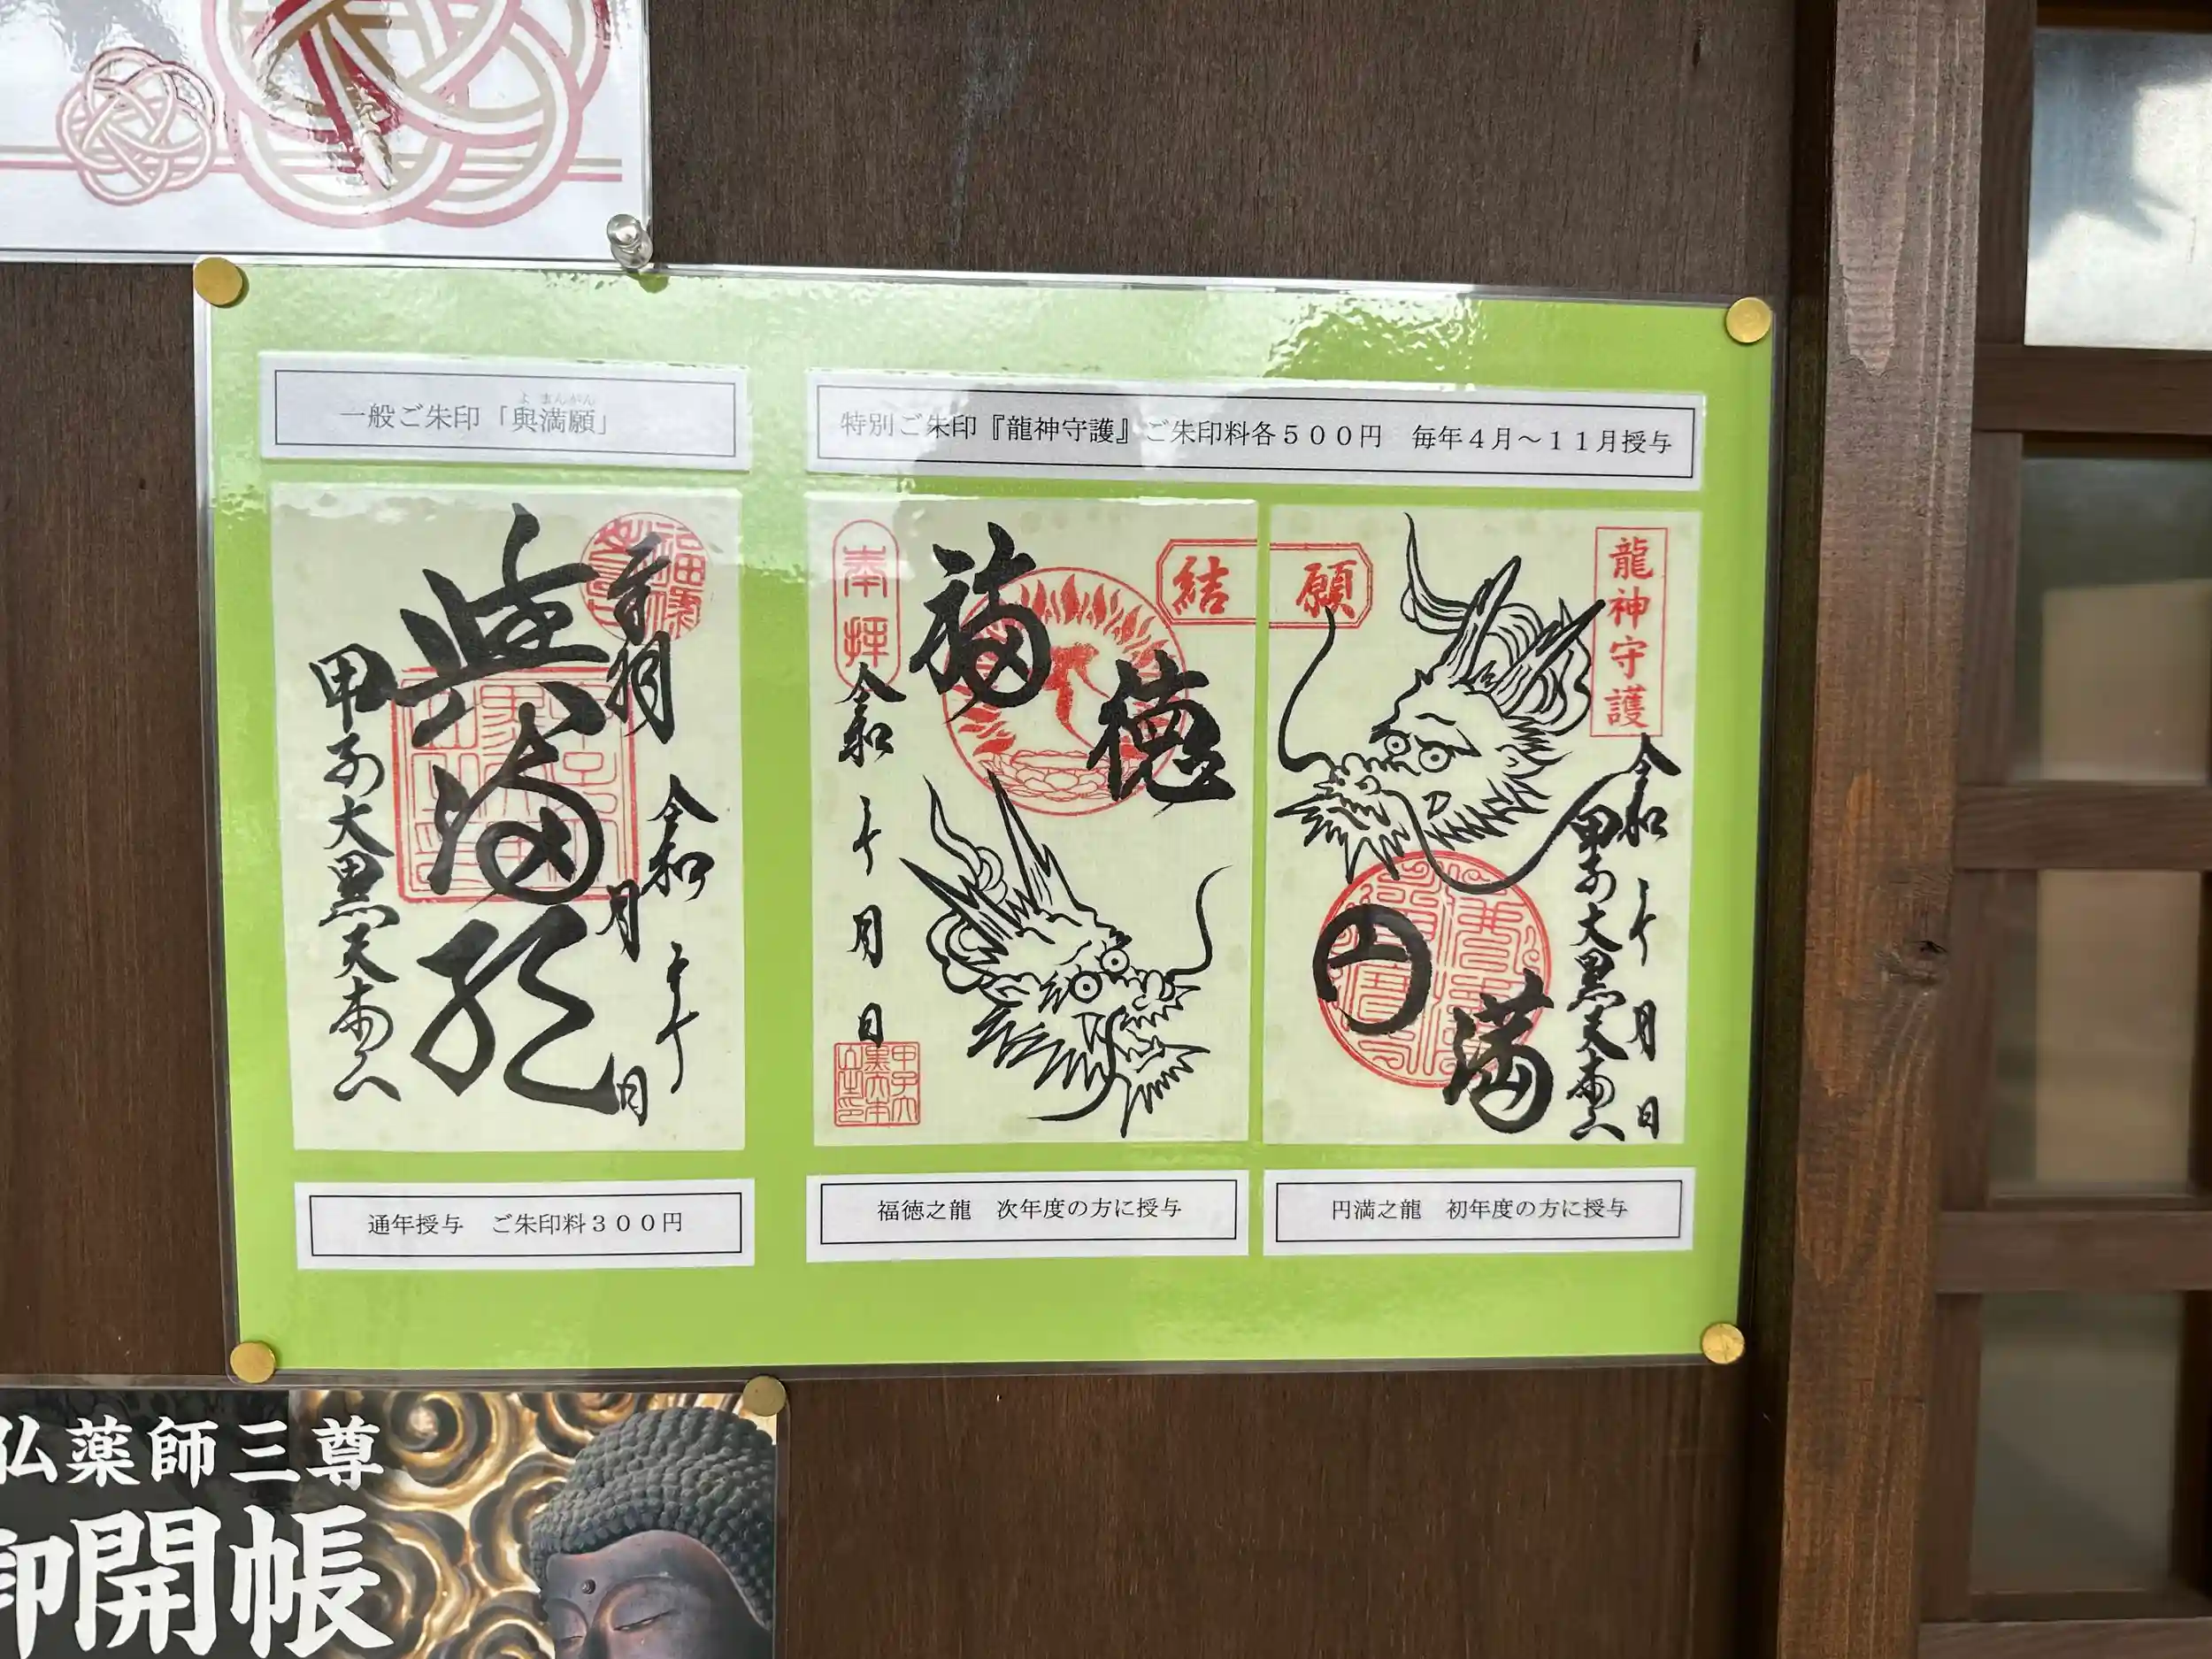 一般ご朱印「與満願」
よまんがん
特別ご朱印『龍神守護』ご朱印料各５００円　毎年４月～１１月授与
令和
年
月
日
與
満
願
甲子大黒天本山
奉拝
福
徳
令和
年
月
日
結願
龍神守護
令和
年
月
日
甲子大黒天本山
円
満
通年授与　ご朱印料３００円
福徳之龍　次年度の方に授与
円満之龍　初年度の方に授与
仏薬師三尊
御開帳